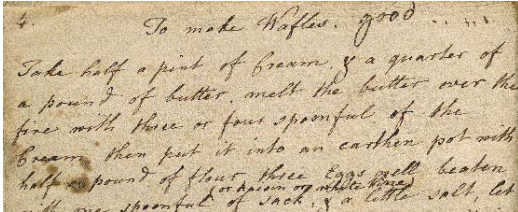 4.
To make Wafles. good
Take half a pint of Cream, & a quarter of
a pound of butter. melt the butter over the
fire with three or four spoonful of the
Cream then put it into an earthen pot with
half a pound of flour three Eggs well beaten
or raison or white wine
with one spoonful of sack, & a little salt, let